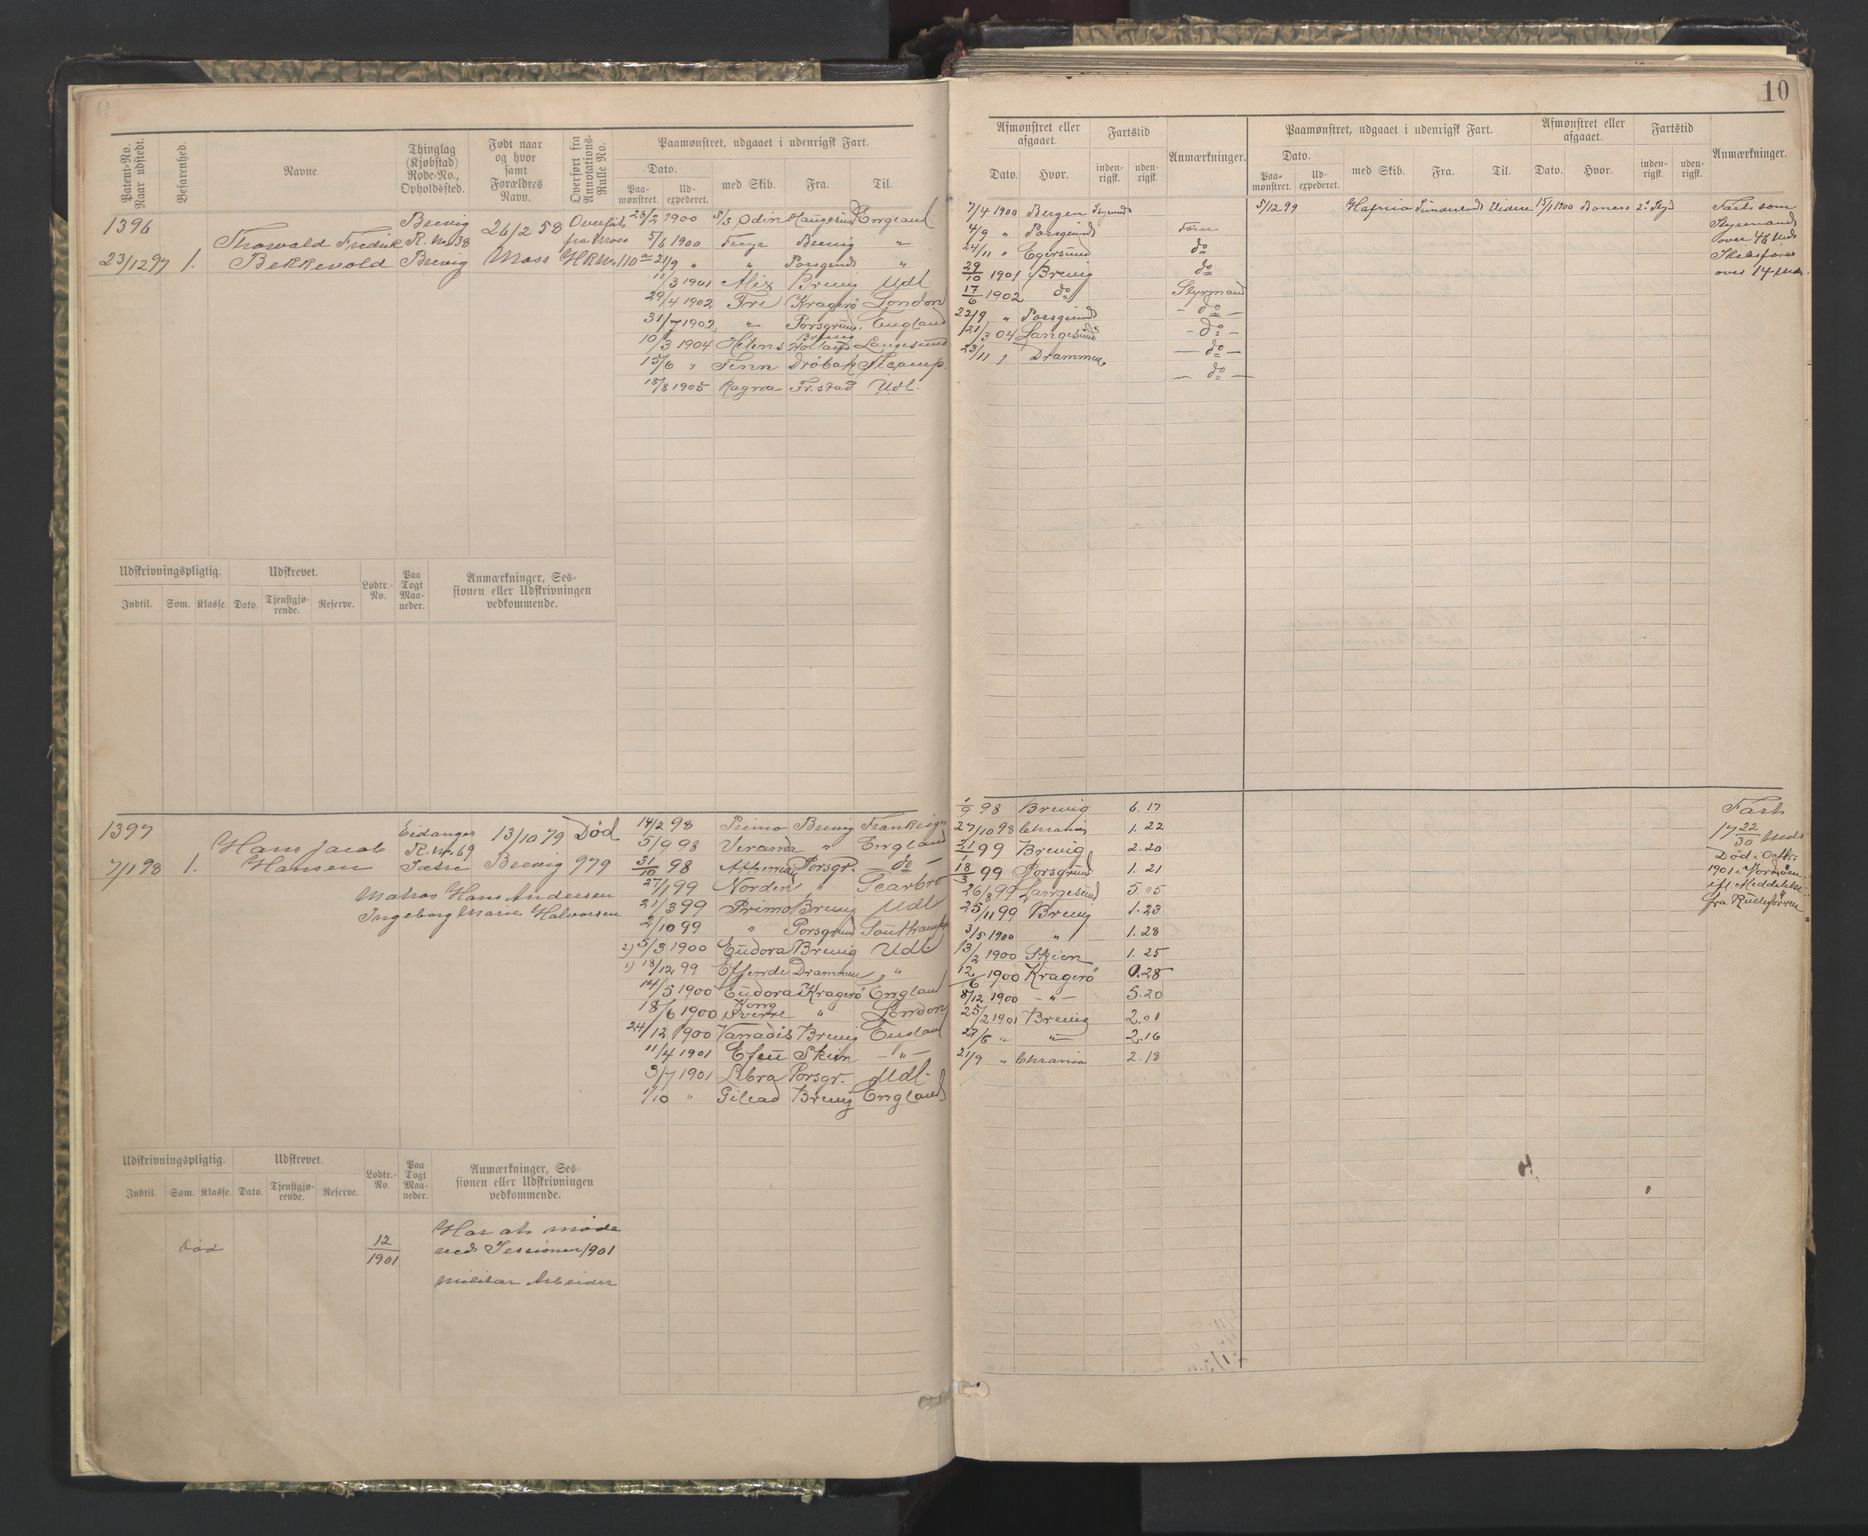 10
Patent-No. Naar udstedt.
Befarenhed.
Navne.
Thinglag (Kjøbstad) Rode-No., Opholdssted.
Født naar og hvor samt Forældres Navn.
Overført fra Annotations-Rulle No.
Paamønstret, udgaaet i udenrigsk Fart.
Dato.
Paa-mønstret.
Ud-expederet.
med Skib.
Fra.
Til.
Afmønstret eller afgaaet.
Dato.
Hvor.
Fartstid
inden-rigsk.
uden-rigsk.
Anmærkninger.
Paamønstret, udgaaet i udenrigsk Fart.
Dato.
Paa-mønstret.
Ud-expederet.
med Skib.
Fra.
Til.
Afmønstret eller afgaaet.
Dato.
Hvor.
Fartstid
inden-rigsk.
uden-rigsk.
Anmærkninger.
1396
23/12 97 1.
Thorvald Fredrik
Bekkevold
Brevig
R. No 38
Brevig
26/2 58
Moss
Overført
fra Moss
H.R. No. 110
28/2 1900 5/3 Odin Haugesund England
5/6 1900 Freyr Brevig "
21/9 " " Porsgrund "
11/3 1901 Alix Brevig Udl
29/4 1902 Fri Kragerø London
31/7 1902 " Porsgrund England
10/3 1904 Helens Langesund
15/6 " Finn Drøbak
18/8 1905 Ragna Fr.stad Udl.
7/4 1900 Bergen
4/9 " Porsgrund
24/11 " Egersund do
29/10 1901 Brevig do
17/6 1902 do Styrmand
22/9 " Porsgrund - do -
21/3 04 Langesund - do -
23/11 " Drammen - do -
- do -
5/12 99 Hafnia Videre 15/1 1900
Fart som
Styrmand
over 46 Mdr
Skibsfører
over 14 Mdr.
Udskrivningspligtig.
Indtil. Som. Klasse.
Udskrevet.
Dato. Tjenstgjø-rende. Reserve.
Lodtr.-No.
Paa Togt Maa-neder.
Anmærkninger, Ses-
sionen eller Udskrivningen
vedkommende.
1397
7/1 98 1.
Hans Jacob
Hansen
Eidanger
R. No. 69
13/10 79
Brevig
Død
979
Matros Hans Andersen
Ingeborg Marie Halvorsen
14/2 98 Primo Brevig Frankrig
5/9 98 Veranda " England
31/10 98 Porsgr. - do -
27/1 99 Norden " Scarbro
21/3 99 Primo Brevig Udl
2/10 99 " Porsgrund Southampt
2) 5/3 1900 Eudora Brevig Udl.
1) 18/12 99 Effende Drammen "
14/5 1900 Eudora Kragerø England
18/6 1900 Kong Sverre " London
24/12 1900 Vanadis Brevig England
11/4 1901 Skien - " -
3/7 1901 Libra Porsgr. Udl.
1/10 " Gilead Brevig England
1/9 98 Brevig 6. 17
27/10 98 Chrania 1. 22
21/1 99 Brevig 2. 20
18/3 99 Porsgrund 1. 21
26/8 99 Langesund 5. 05
25/11 99 Brevig 1. 23
3/5 1900 " 1. 28
13/2 1900 Skien 1. 25
12/6 1900 Kragerø 0. 28
8/12 1900 - " - 5. 20
25/2 1901 Brevig 2. 01
27/6 " " 2. 16
21/9 " Chrania 2. 18
Fart
17 22/30 Mdr
Død i Octbr.
1901 i
ifl Meddelelse
fra Rulleføreren
Udskrivningspligtig.
Indtil. Som. Klasse.
Udskrevet.
Dato. Tjenstgjø-rende. Reserve.
Lodtr.-No.
Paa Togt Maa-neder.
Anmærkninger, Ses-
sionen eller Udskrivningen
vedkommende.
død
12/1901
Har at møde
ved Sessionen 1901
Militær Arbeider